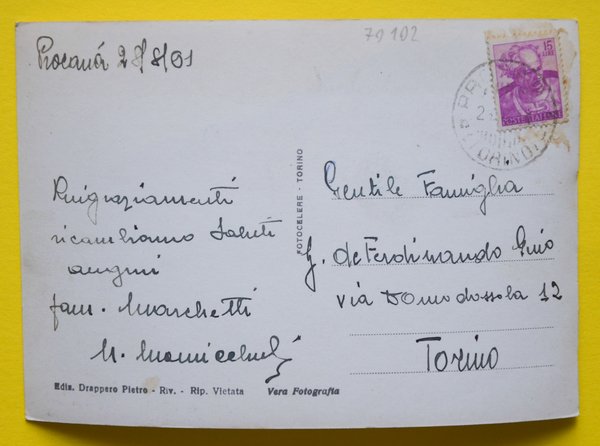 28/8/61
79102
15
LIRE
POSTE ITALIANE
TORINO
Ringraziamenti
ricambiamo saluti
auguri
fam. Marchetti
M.
FOTOCELERE - TORINO
Gentile Famiglia
G. de Ferdinando Gino
via Domodossola 12
Torino
Ediz. Drappero Pietro - Riv. - Rip. Vietata Vera Fotografia